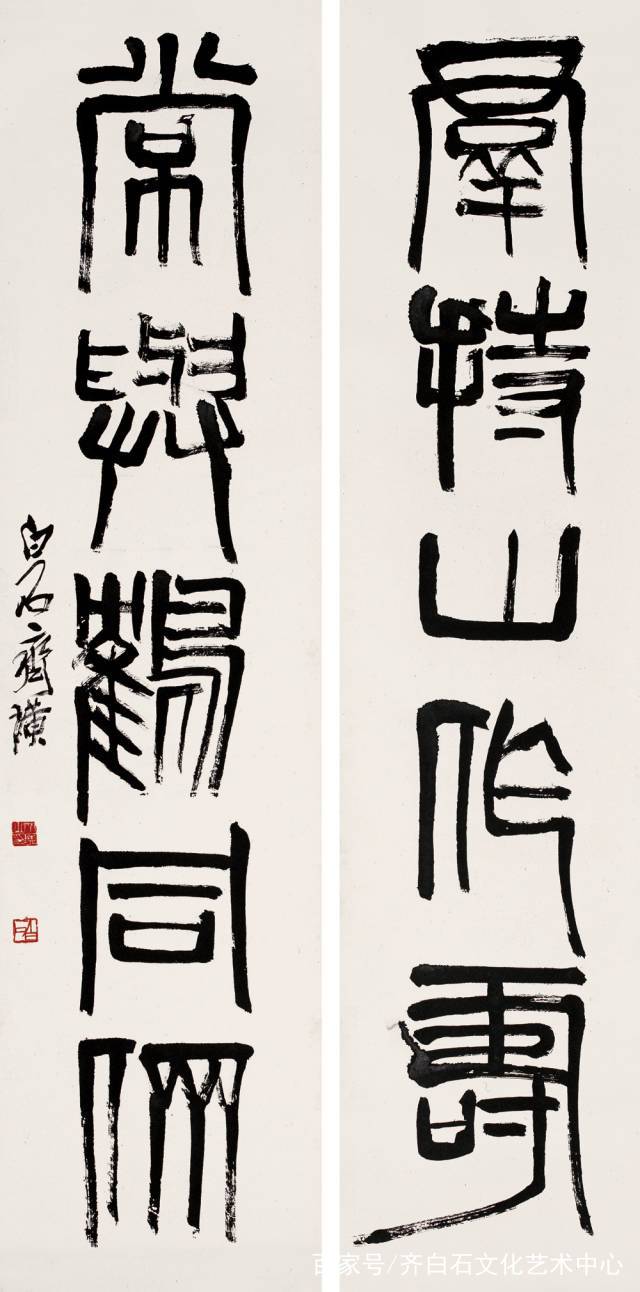 羣持山作壽
常與鶴同儕
白石齊璜
百家号/齐白石文化艺术中心